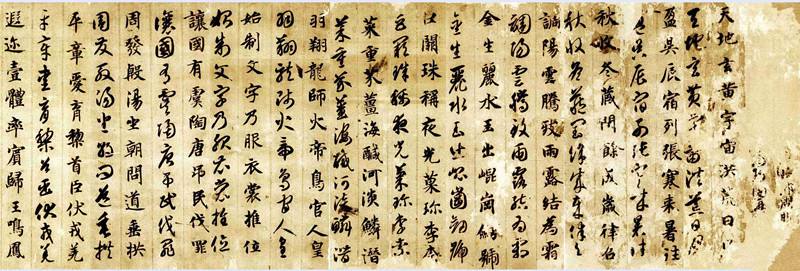 天地玄黄宇宙洪荒日月
天地玄黄宇宙洪荒日月
盈昃辰宿列張寒来暑往
昃辰宿列張寒来暑往
秋收冬藏閏餘成歲律吕
秋收冬藏閏餘成歲律吕
調陽雲騰致雨露結為霜
調陽雲騰致雨露結為霜
金生麗水玉出崑崗劍號
金生麗水玉出崑崗劍號
巨闕珠稱夜光菓珎李柰
巨闕珠稱夜光菓珎李柰
菜重芥薑海鹹河淡鱗潜
菜重芥薑海鹹河淡鱗潜
羽翔龍師火帝鳥官人皇
羽翔龍師火帝鳥官人皇
始制文字乃服衣裳推位
始制文字乃服衣裳推位
讓國有虞陶唐弔民伐罪
讓國有虞陶唐弔民伐罪
周發殷湯坐朝問道垂拱
周發殷湯坐朝問道垂拱
平章愛育黎首臣伏戎羌
平章愛育黎首臣伏戎羌
遐迩壹體率賓歸王鳴鳳